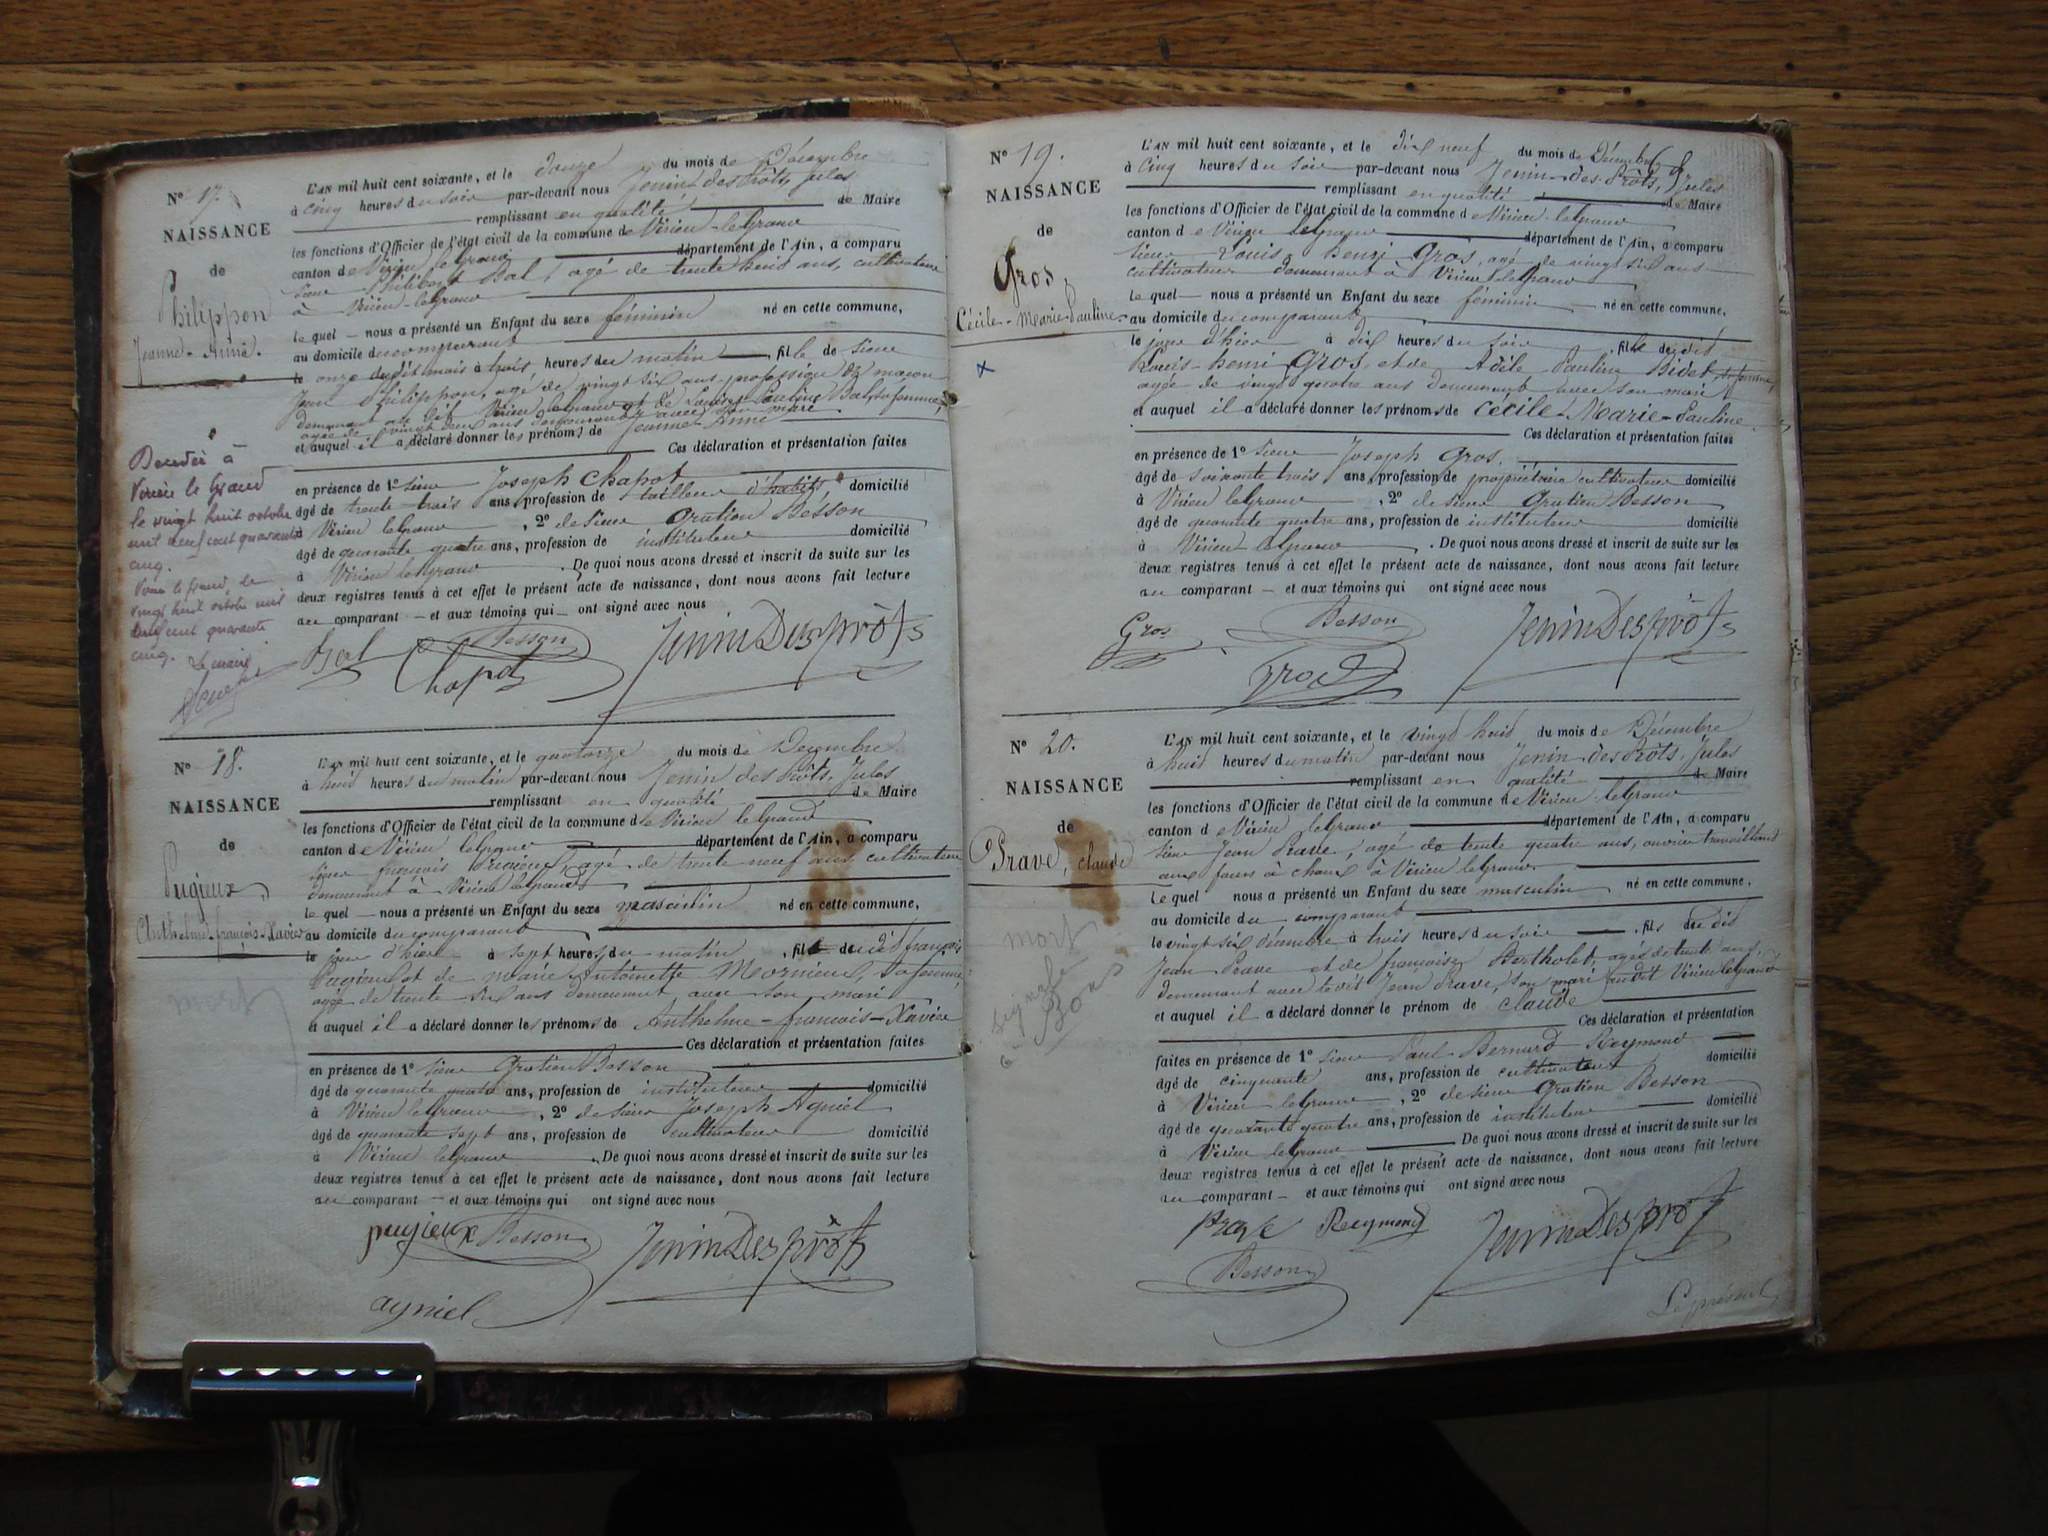 N° 17.
NAISSANCE
de
Philippon
Jeanne-Anne.
Décédée à
Virieu le Grand
le vingt huit octobre
mil neuf cent quarante
cinq.
Virieu le Grand, le
vingt huit octobre mil
neuf cent quarante
cinq. Le maire
L'AN mil huit cent soixante, et le douze du mois de Décembre
à cinq heures du soir par-devant nous Jenin des Prôts, Jules
remplissant en qualité de Maire
les fonctions d'Officier de l'état civil de la commune de Virieu-le-Grand
canton de Virieu le Grand département de l'Ain, a comparu
sieur Philibert Bal, agé de trente huit ans, cultivateur
à Virieu-le-Grand
le quel nous a présenté un Enfant du sexe féminin né en cette commune,
au domicile du comparant
le onze dudit mois à trois heures du matin, fille de sieur
Jean Philippon, agé de vingt six ans profession de maçon
demeurant au dit Virieu le Grand et de Louise Pauline Bal, sa femme,
agée de vingt deux ans demeurant avec son mari
et auquel il a déclaré donner les prénoms de Jeanne-Anne
Ces déclaration et présentation faites
en présence de 1° sieur Joseph Chapot
âgé de trente-trois ans, profession de tailleur d'habits, domicilié
à Virieu le Grand, 2° de sieur Gratien Besson
âgé de quarante quatre ans, profession de instituteur domicilié
à Virieu le Grand. De quoi nous avons dressé et inscrit de suite sur les
deux registres tenus à cet effet le présent acte de naissance, dont nous avons fait lecture
au comparant et aux témoins qui ont signé avec nous
Bal Besson JeninDesprôts
Chapot
N° 18.
NAISSANCE
de
Pugieux,
Anthelme-françois-Xavier
L'AN mil huit cent soixante, et le quatorze du mois de Décembre
à huit heures du matin par-devant nous Jenin des Prôts, Jules
remplissant en qualité de Maire
les fonctions d'Officier de l'état civil de la commune de Virieu le Grand
canton de Virieu le Grand département de l'Ain, a comparu
sieur françois Pugieux, agé de trente neuf ans, cultivateur
demeurant à Virieu le Grand
le quel nous a présenté un Enfant du sexe masculin né en cette commune,
au domicile du comparant
le jour d'hier à sept heures du matin, fils du dit françois
Pugieux et de marie Antoinette Mornieux, sa femme,
agée de trente six ans demeurant avec son mari
et auquel il a déclaré donner les prénoms de Anthelme-françois-Xavier
Ces déclaration et présentation faites
en présence de 1° sieur Gratien Besson
âgé de quarante quatre ans, profession de instituteur domicilié
à Virieu le Grand, 2° de sieur Joseph Agniel
âgé de quarante sept ans, profession de cultivateur domicilié
à Virieu le Grand. De quoi nous avons dressé et inscrit de suite sur les
deux registres tenus à cet effet le présent acte de naissance, dont nous avons fait lecture
au comparant et aux témoins qui ont signé avec nous
pugieux Besson JeninDesprôts
agniel
N° 19.
NAISSANCE
de
Gros,
Cécile-Marie-Pauline.
L'AN mil huit cent soixante, et le dix neuf du mois de Décembre
à cinq heures du soir par-devant nous Jenin-des-Prôts, Jules
remplissant en qualité de Maire
les fonctions d'Officier de l'état civil de la commune de Virieu-le-Grand
canton de Virieu le Grand département de l'Ain, a comparu
sieur Louis Henri Gros, agé de vingt six ans
cultivateur demeurant à Virieu le Grand
le quel nous a présenté un Enfant du sexe féminin né en cette commune,
au domicile du comparant
le jour d'hier à dix heures du soir, fille du dit
Louis-henri Gros, et de Adèle Pauline Bidet, sa femme,
agée de vingt quatre ans demeurant avec son mari
et auquel il a déclaré donner les prénoms de Cécile-Marie-Pauline.
Ces déclaration et présentation faites
en présence de 1° sieur Joseph Gros.
âgé de soixante trois ans, profession de propriétaire cultivateur domicilié
à Virieu le Grand, 2° de sieur Gratien Besson
âgé de quarante quatre ans, profession de instituteur domicilié
à Virieu le Grand. De quoi nous avons dressé et inscrit de suite sur les
deux registres tenus à cet effet le présent acte de naissance, dont nous avons fait lecture
au comparant et aux témoins qui ont signé avec nous
Gros Besson JeninDesprôts
Gros
N° 20.
NAISSANCE
de
Prave, claude
mort
L'AN mil huit cent soixante, et le vingt huit du mois de Décembre
à huit heures du matin par-devant nous Jenin-des-Prôts, Jules
remplissant en qualité de Maire
les fonctions d'Officier de l'état civil de la commune de Virieu-le-Grand
canton de Virieu le Grand département de l'Ain, a comparu
sieur Jean Prave, agé de trente quatre ans, ouvrier travaillant
aux fours à chaux à Virieu le Grand
le quel nous a présenté un Enfant du sexe masculin né en cette commune,
au domicile du comparant
le vingt six décembre à trois heures du soir, fils du dit
Jean Prave et de françoise Bertholet, agée de trente ans,
demeurant avec le dit Jean Prave, son mari audit Virieu le Grand
et auquel il a déclaré donner le prénom de claude
Ces déclaration et présentation
faites en présence de 1° sieur Paul-Bernard Reymond
âgé de cinquante ans, profession de cultivateur domicilié
à Virieu le Grand, 2° de sieur Gratien Besson
âgé de quarante quatre ans, profession de instituteur domicilié
à Virieu le Grand. De quoi nous avons dressé et inscrit de suite sur les
deux registres tenus à cet effet le présent acte de naissance, dont nous avons fait lecture
au comparant et aux témoins qui ont signé avec nous
Prave Reymond JeninDesprôts
Besson